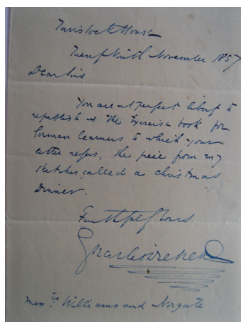 Tavistock House
Twenty Ninth November 1857
Dear Sirs
You are at perfect liberty to
republish in the Exercise book for
German learners to which your
letter refers, the piece from my
sketches, called a Christmas
Dinner.
Faithfully Yours
Charles Dickens
Messrs Williams and Norgate